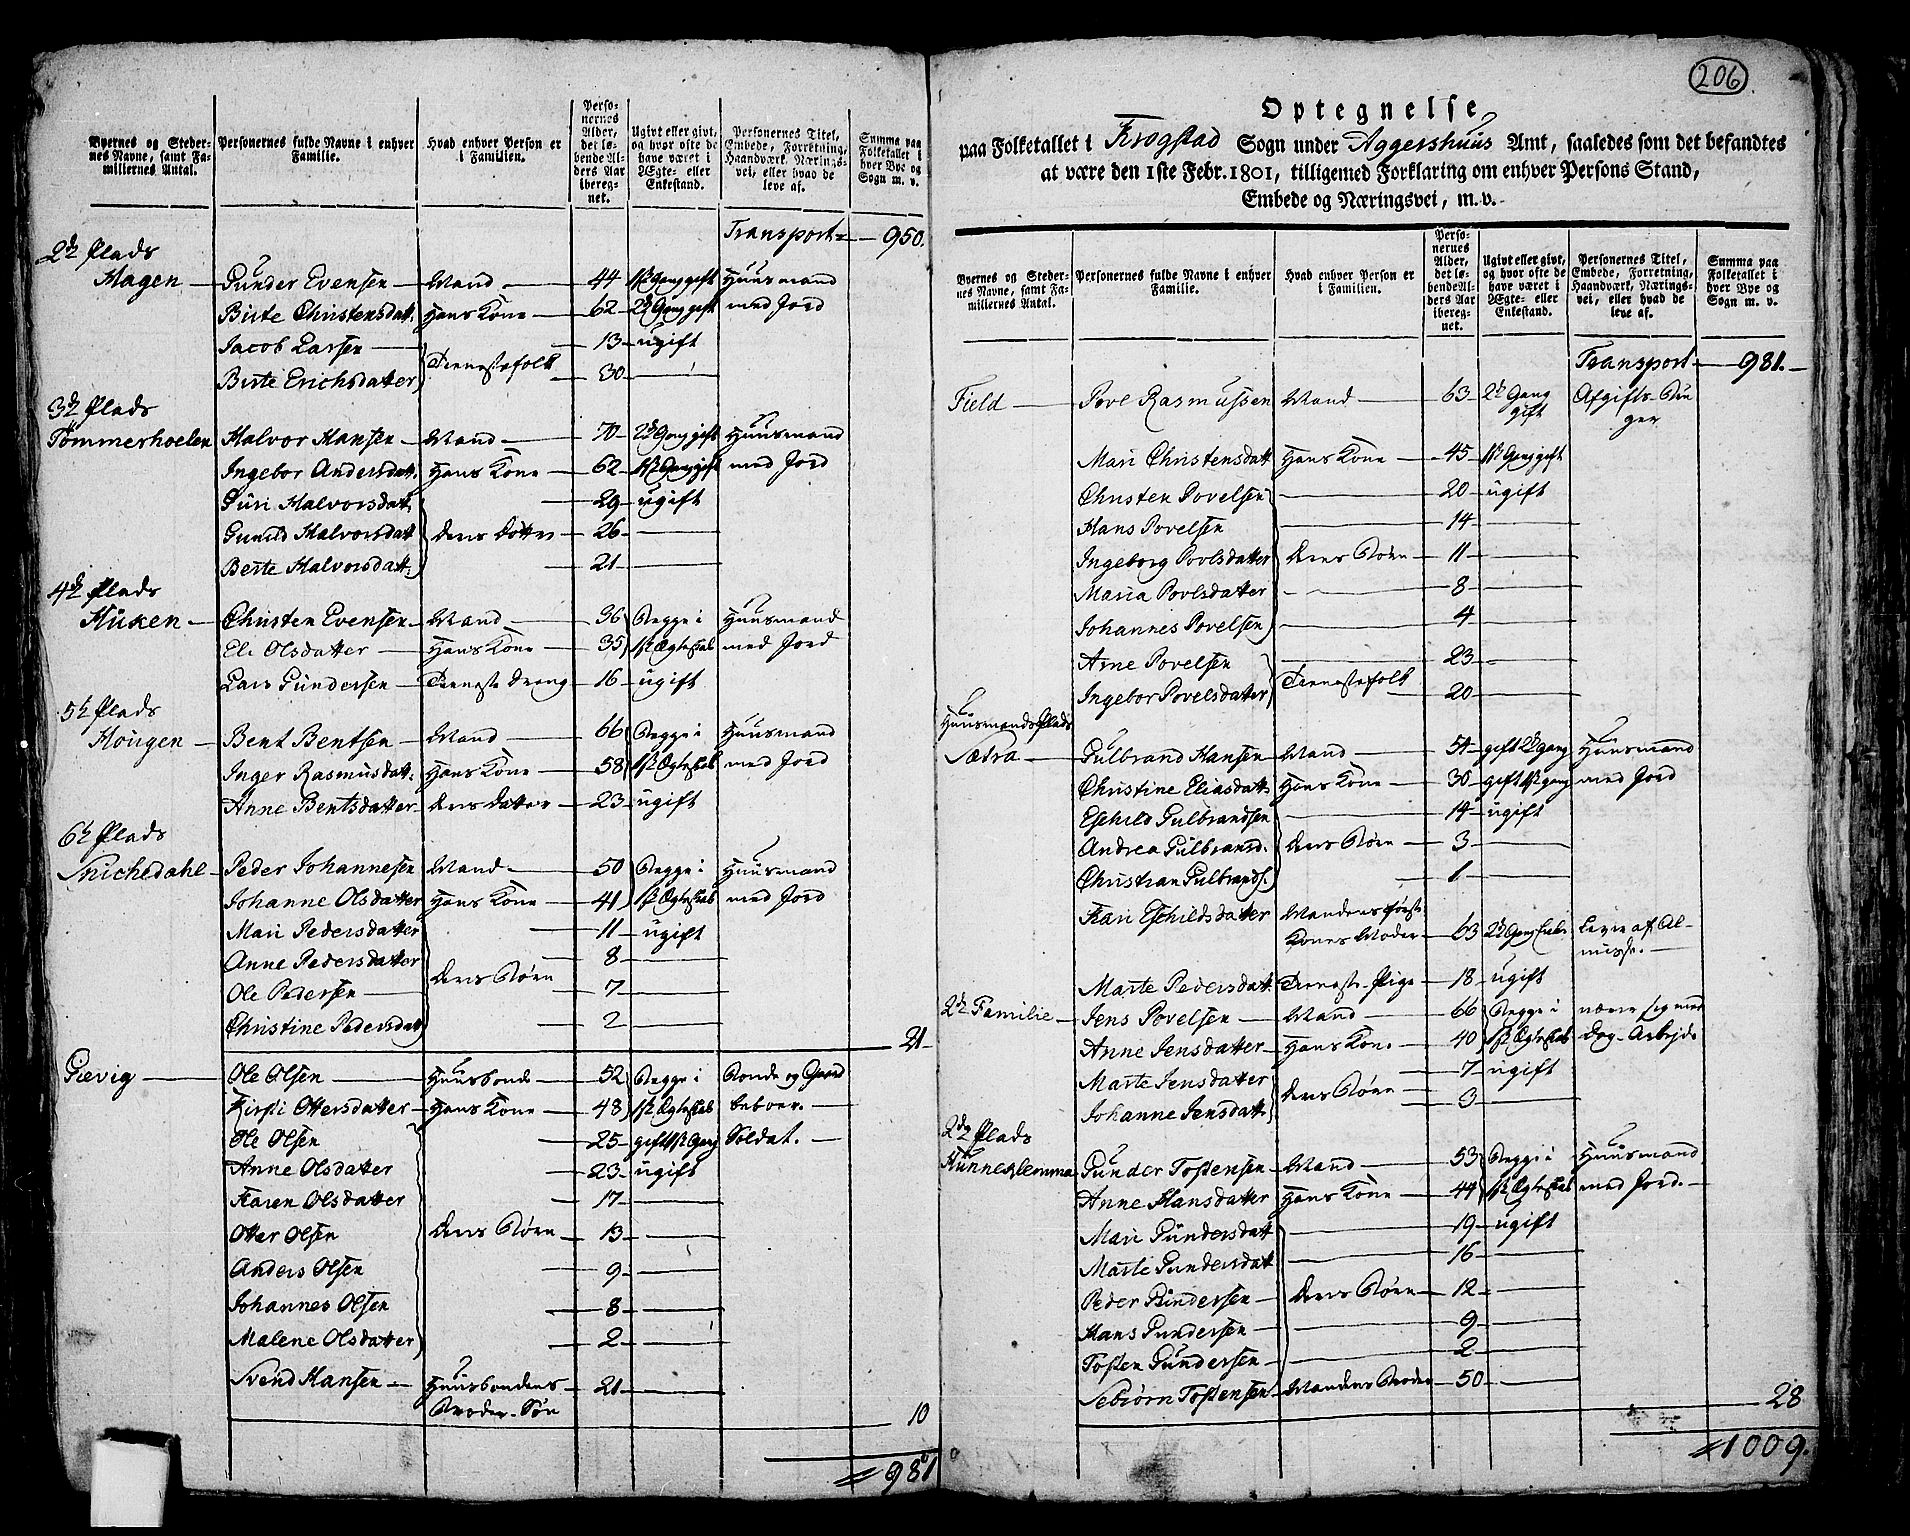 Byernes og Steder-
nes Navne, samt Fa-
millernes Antal.
Personernes fulde Navne i enhver
Familie.
Hvad enhver Person er
i Familien.
Perso-
nernes
Alder,
det lø-
bende Al-
ders Aar
ibereg-
net.
Ugivt eller givt,
og hvor ofte de
have været i
Ægte- eller
Enkestand.
Personernes Titel,
Embede, Forretning,
Haandværk, Nærings-
vei, eller hvad de
leve af.
Summa paa
Folketallet i
hver Bye og
Sogn m. v.
Transport 950.
2de Plads
Hagen Gunder Evensen Mand 44 1ste Gang gift Huusmand
Birte Christensdatt. Hans Kone 62 2de Gang gift med Jord
Jacob Larsen 13 ugift
Tienestefolk
Birte Erichsdatter 30
3de Plads
Tømmerhoelen Halvor Hansen Mand 70 2de Gang gift Huusmand
Ingebor Andersdatt. Hans Kone 62 1ste Gang gift med Jord
Guri Halvorsdatt. 29 ugift
Gunild Halvorsdatt Deres Døttre 26
Berte Halvorsdatt. 21
4de Plads
Huken Christen Evensen Mand 36 Begge i Huusmand
Eli Olsdatter Hans Kone 35 1ste Ægteskab med Jord
Lars Gundersen Tieneste Dreng 16 ugift
5te Plads
Hougen Bent Bentsen Mand 66 Begge i Huusmand
Inger Rasmusdatt. Hans Kone 58 1ste Ægteskab med Jord
Anne Bentsdatter Deres Datter 23 ugift
6te Plads
Snichedahl Peder Johannesen Mand 50 Begge i Huusmand
Johanne Olsdatter Hans Kone 41 1ste Ægteskab med Jord
Mari Pedersdatter 11 ugift
Anne Pedersdatter 8
Deres Børn
Ole Pedersen 7
Christine Pedersdatt 2
21
Gievig Ole Olsen Huusbonde 52 Begge i Bonde og Gaard
Kirsti Ottersdatter Hans Kone 48 1ste Ægteskab beboer.
Ole Olsen 25 gift 1ste Gang Soldat.
Anne Olsdatter 23 ugift
Karen Olsdatter 17
Otter Olsen Deres Børn 13
Anders Olsen 9
Johannes Olsen 8
Malene Olsdatter 2
Svend Hansen Huusbondens 21
Broder Søn
10
981
206
Optegnelse
paa Folketallet i Krogstad Sogn under Aggershuus Amt, saaledes som det befandtes
at være den 1ste Febr. 1801, tilligemed Forklaring om enhver Persons Stand,
Embede og Næringsvei, m. v.
Byernes og Steder-
nes Navne, samt Fa-
millernes Antal.
Personernes fulde Navne i enhver
Familie.
Hvad enhver Person er
i Familien.
Perso-
nernes
Alder,
det lø-
bende Al-
ders Aar
ibereg-
net.
Ugivt eller givt,
og hvor ofte de
have været i
Ægte- eller
Enkestand.
Personernes Titel,
Embede, Forretning,
Haandværk, Nærings-
vei, eller hvad de
leve af.
Summa paa
Folketallet i
hver Bye og
Sogn m. v.
Transport 981.
Field Povl Rasmussen Mand 63 2de Gang Afgifts-Bru
gift ger
Mari Christensdatt Hans Kone 45 1ste Gang gift
Christen Povelsen 20 ugift
Hans Povelsen 14
Ingeborg Povlsdatter Deres Børn 11
Maria Povlsdatter 8
Johannes Povelsen 4
Arne Povelsen 23
Tienestefolk
Ingebor Povelsdatter 20
Huusmands Plads
Sætra Gulbrand Hansen Mand 54 gift 2de Gang Huusmand
Christine Eliasdatt. Hans Kone 30 gift 1ste gang med Jord
Eschild Gulbrandsen 14 ugift
Andrea Gulbransd. Deres Børn 3
Christian Gulbrands. 1
Kari Eschildsdatter Mandens første
Kones Moder 63 2de Gang Enke Lever af Al-
misse.
Marte Pedersdatt. Tieneste Pige 18 ugift
2de Familie Jens Povelsen Mand 66 Begge i nærer sig med
Anne Jensdatter Hans Kone 40 1ste Ægteskab Dag-Arbejde
Marte Jensdatter 7 ugift
Deres Børn
Johanne Jensdatt. 3
2de Plads
Hunneklemma Gunder Tostensen Mand 53 Begge i Huusmand
Anne Hansdatter Hans Kone 44 1ste Ægteskab med Jord.
Mari Gundersdatt 19 ugift
Marte Gundersdatt 16
Peder Gundersen Deres Børn 12
Hans Gundersen 9
Tosten Gundersen 2
Sebiørn Tostensen Mandens Broder 50
28
1009.